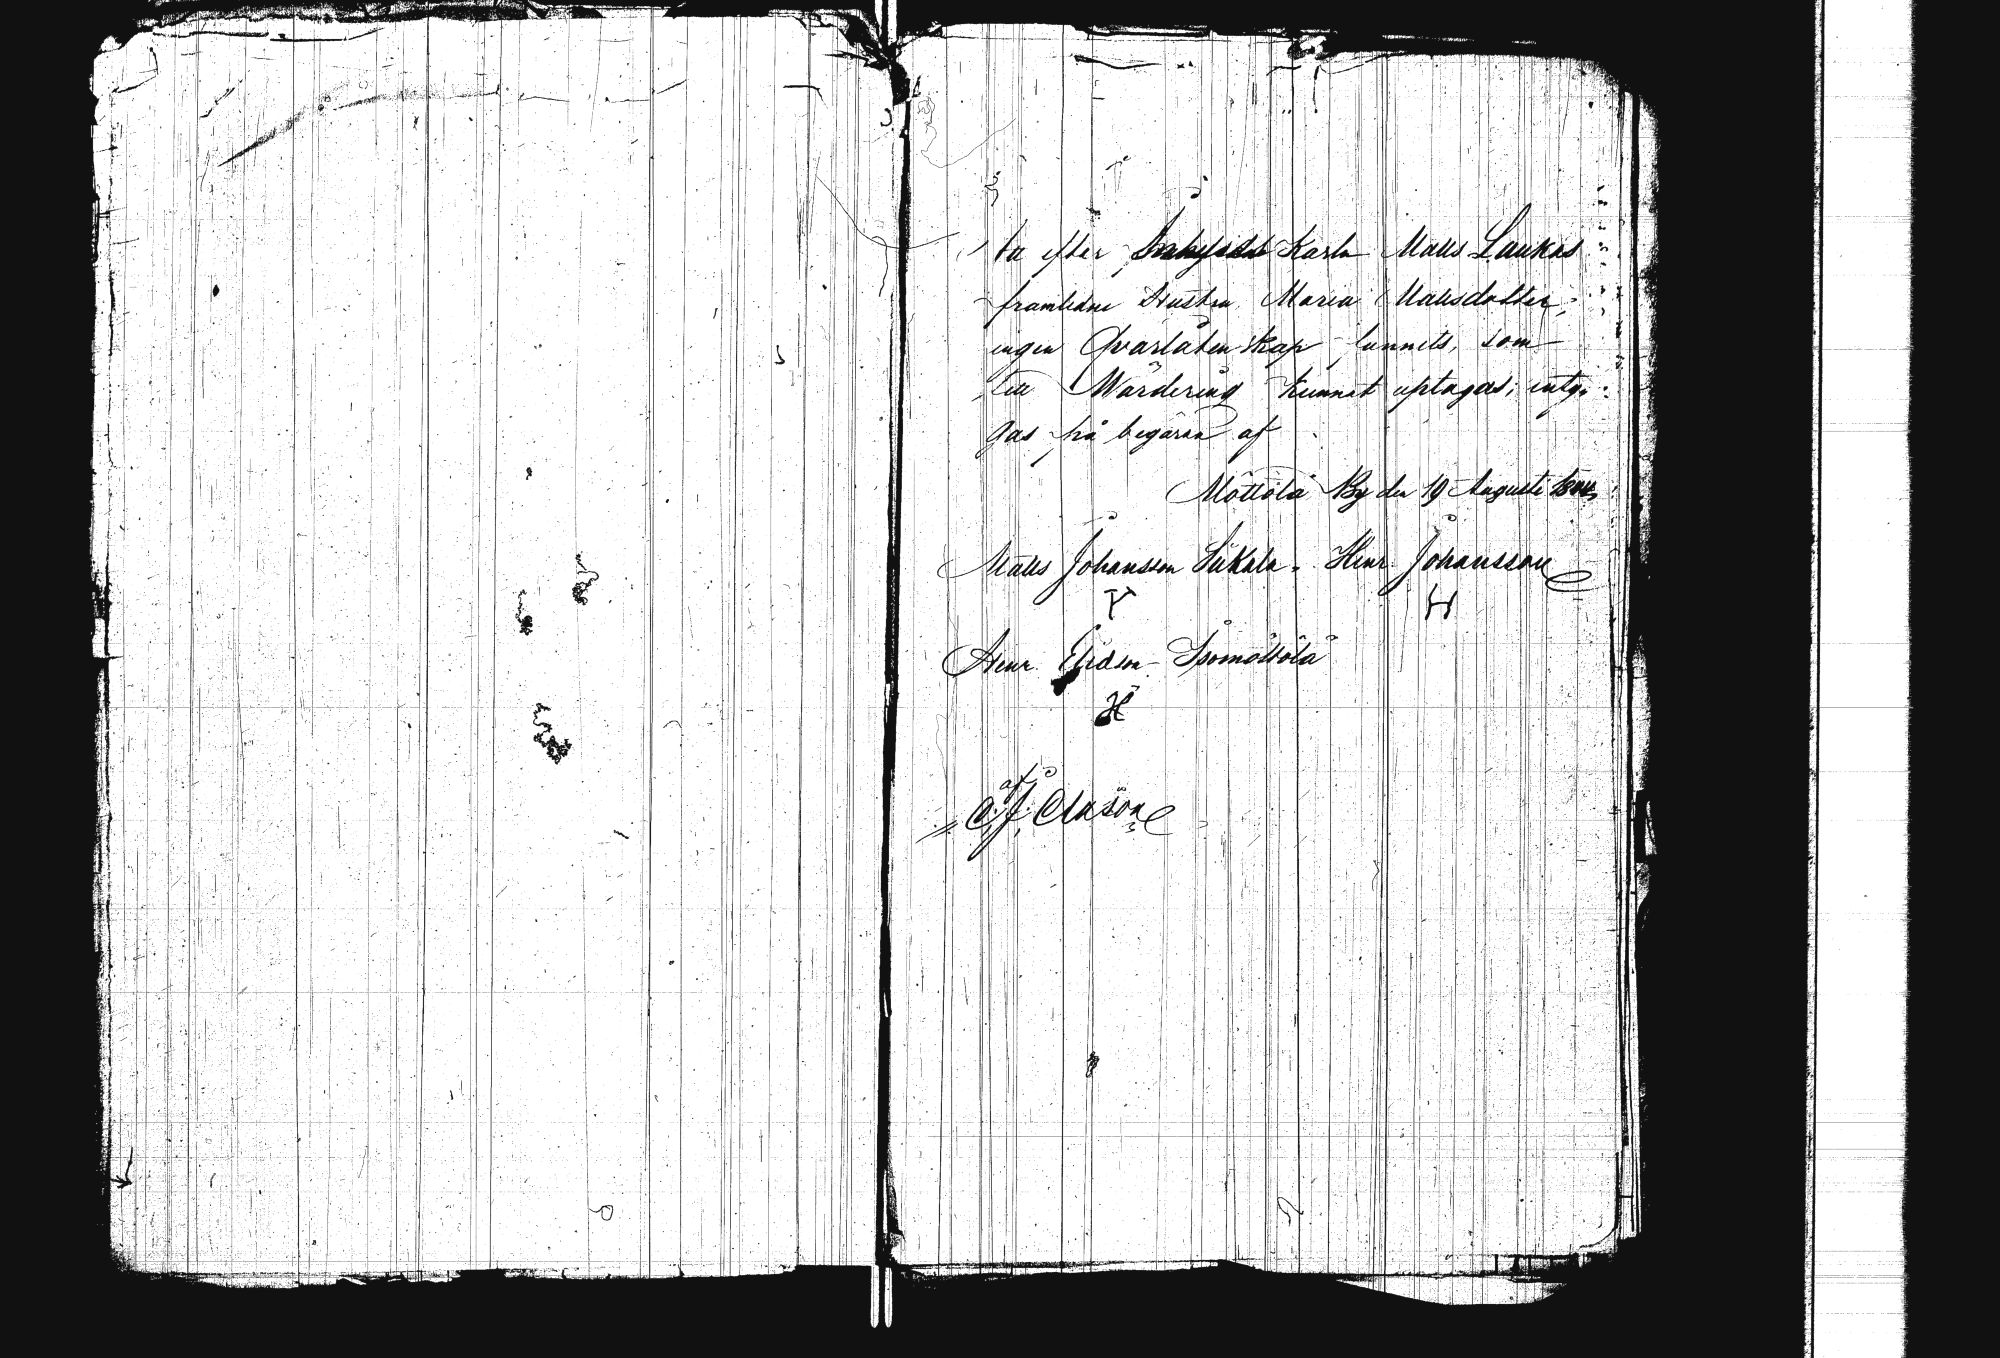 ta efter Inhyses Karln Matts Laukas
framledne Hustru Maria Mattsdotter,
ingen Qvarlåtenskap funnits, som
till Wärdering kunnat uptagas; inty-
gas på begäran af
Möttölä By den 19 Augusti
Matts Johansson Sukala. Henr. Johansson
H
Henr. Isomöttölä
H
af
C. J. Clason